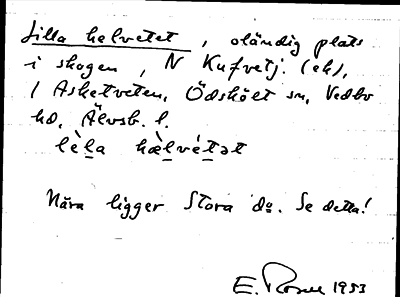 Lilla helvetet, oländig plats
i skogen, N Kufvetj. (eh),
/ Asketveten, Ödskölt sn, Vedbo
hd, Älvsb. l.
lèla hælvétət
Nära ligger Stora do. Se detta!
E. 1933